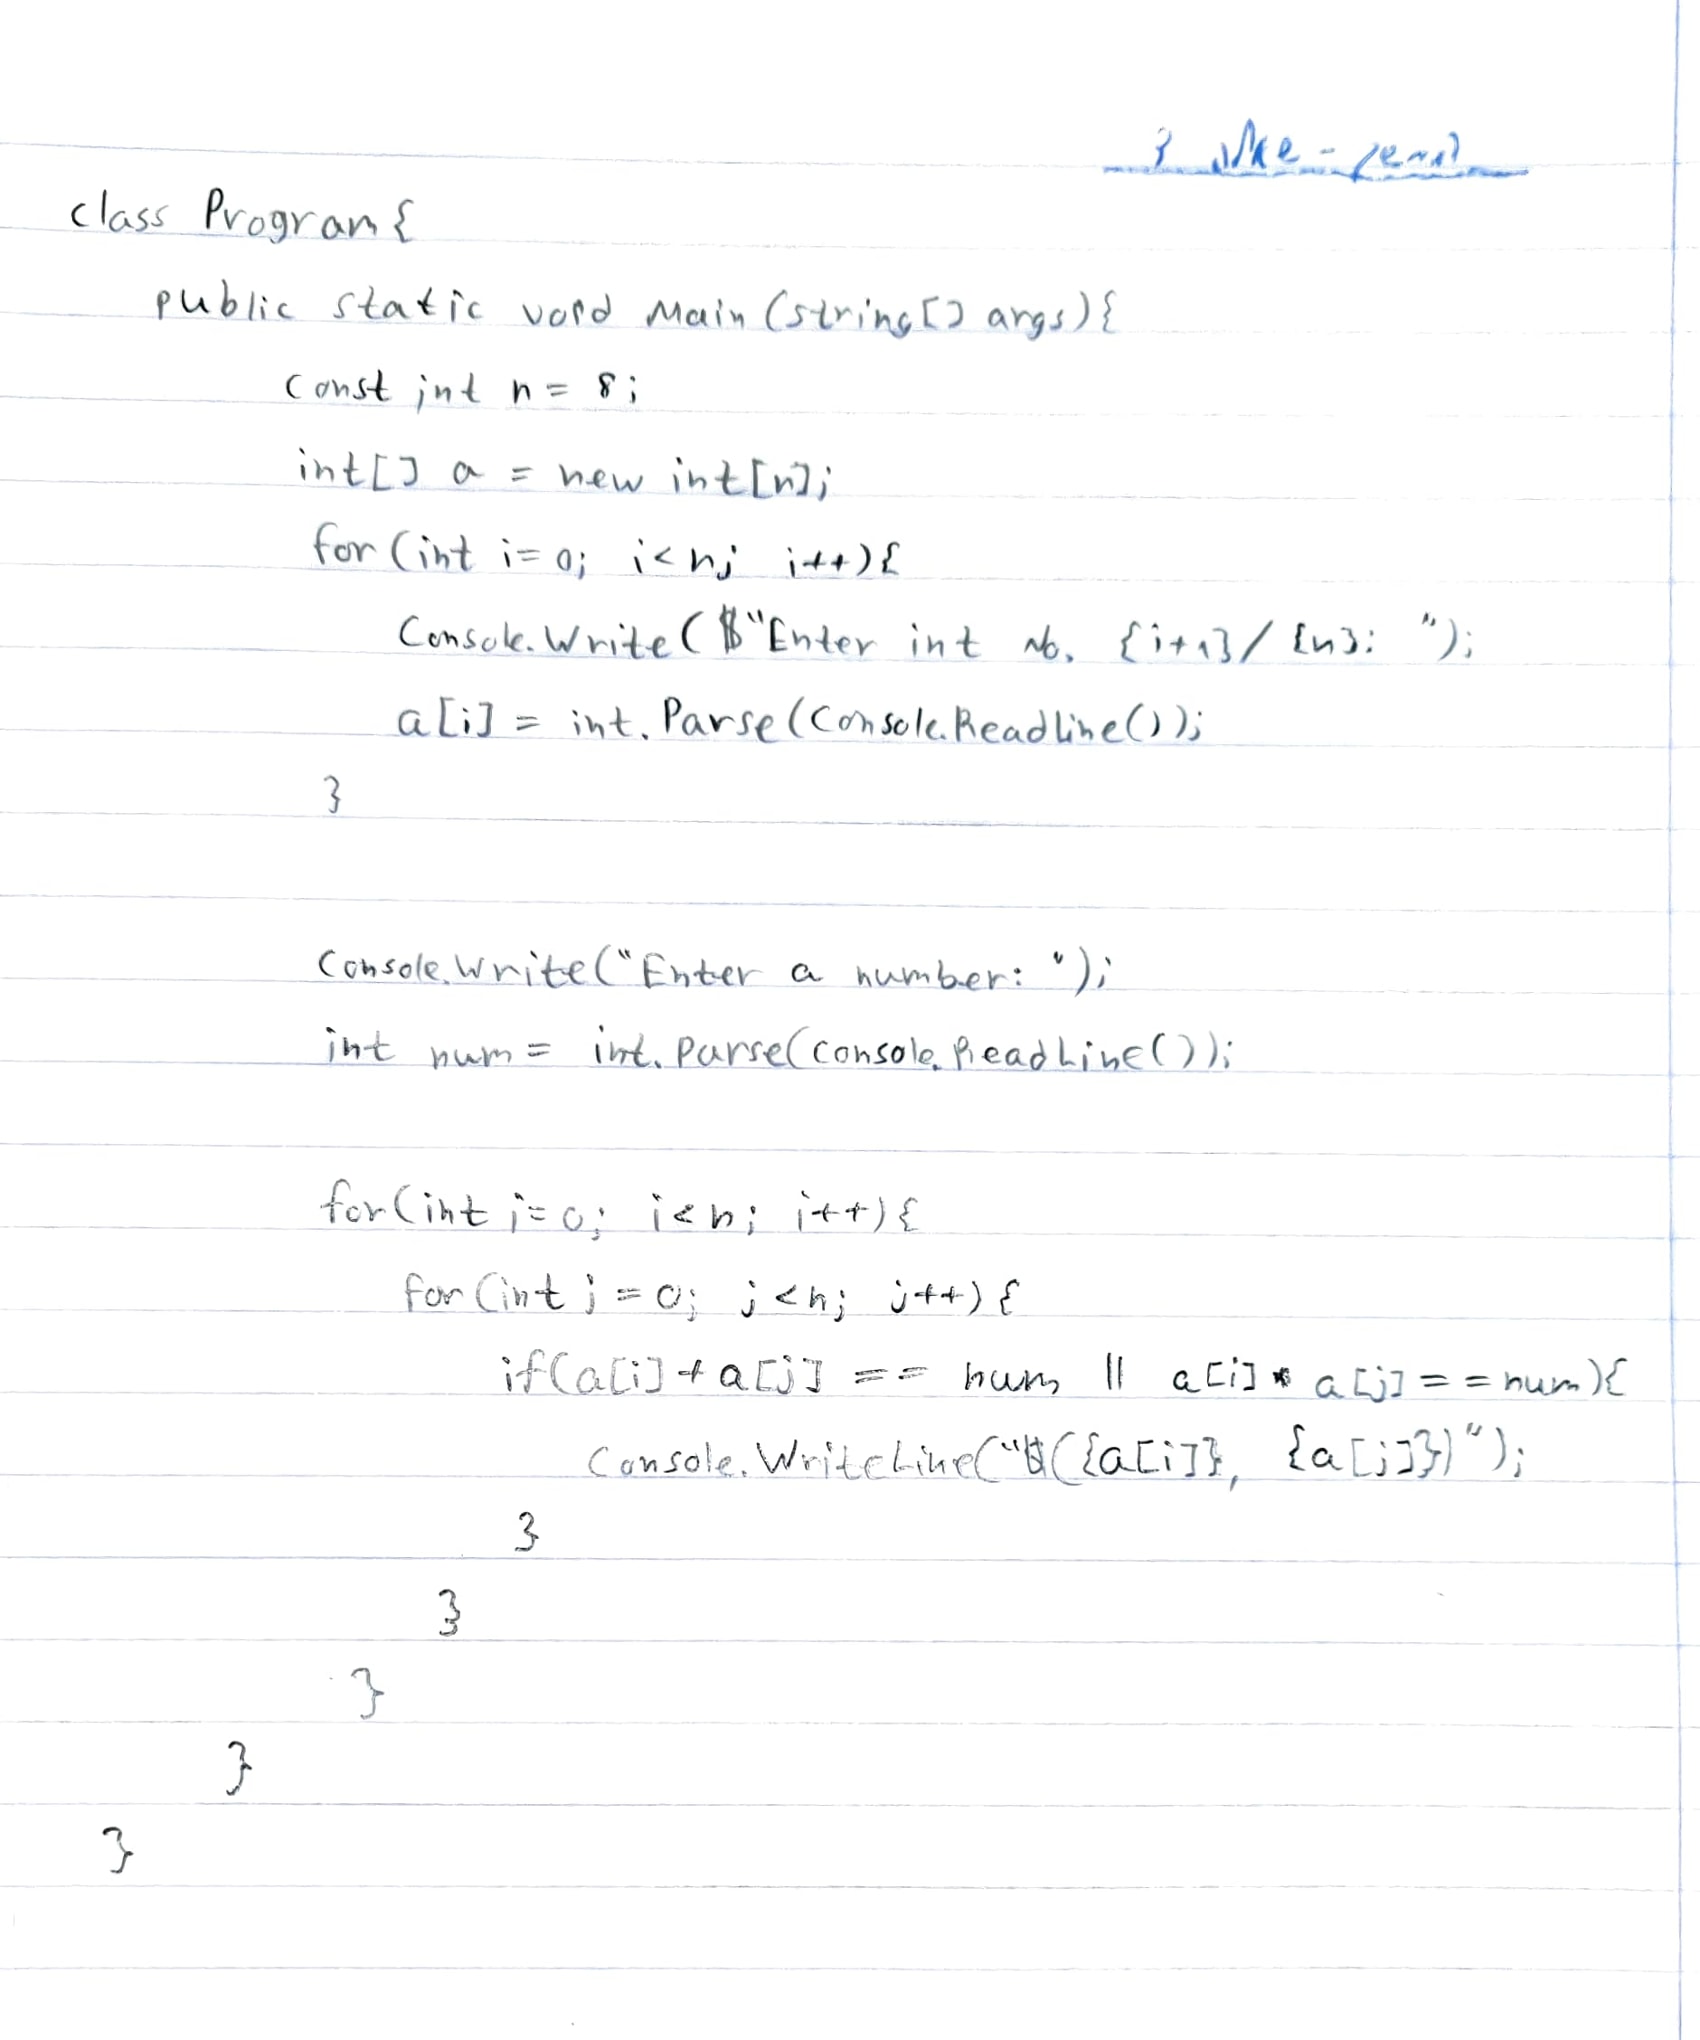 class Program{
public static void Main (string[] args){
const int n = 8;
int[] a = new int[n];
for (int i=0; i<n; i++){
Console.Write($"Enter int No. {i+1}/{n}: ");
a[i] = int.Parse(Console.ReadLine());
}
Console.Write("Enter a number: ");
int num = int.Parse(Console.ReadLine());
for(int i=0; i<n; i++){
for(int j=0; j<n; j++){
if(a[i]+a[j] == num || a[i]*a[j]==num){
Console.WriteLine("$({a[i]}, {a[j]})");
}
}
}
}
}